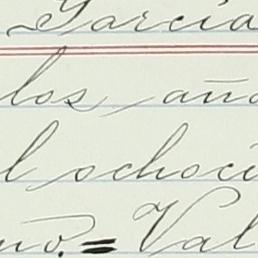 Garcia
los año
l ochoci
no. = Val